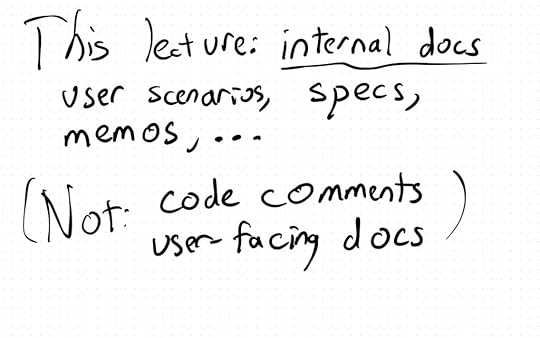 This lecture: internal docs
user scenarios, specs,
memos, ...
(Not: code comments
user-facing docs)